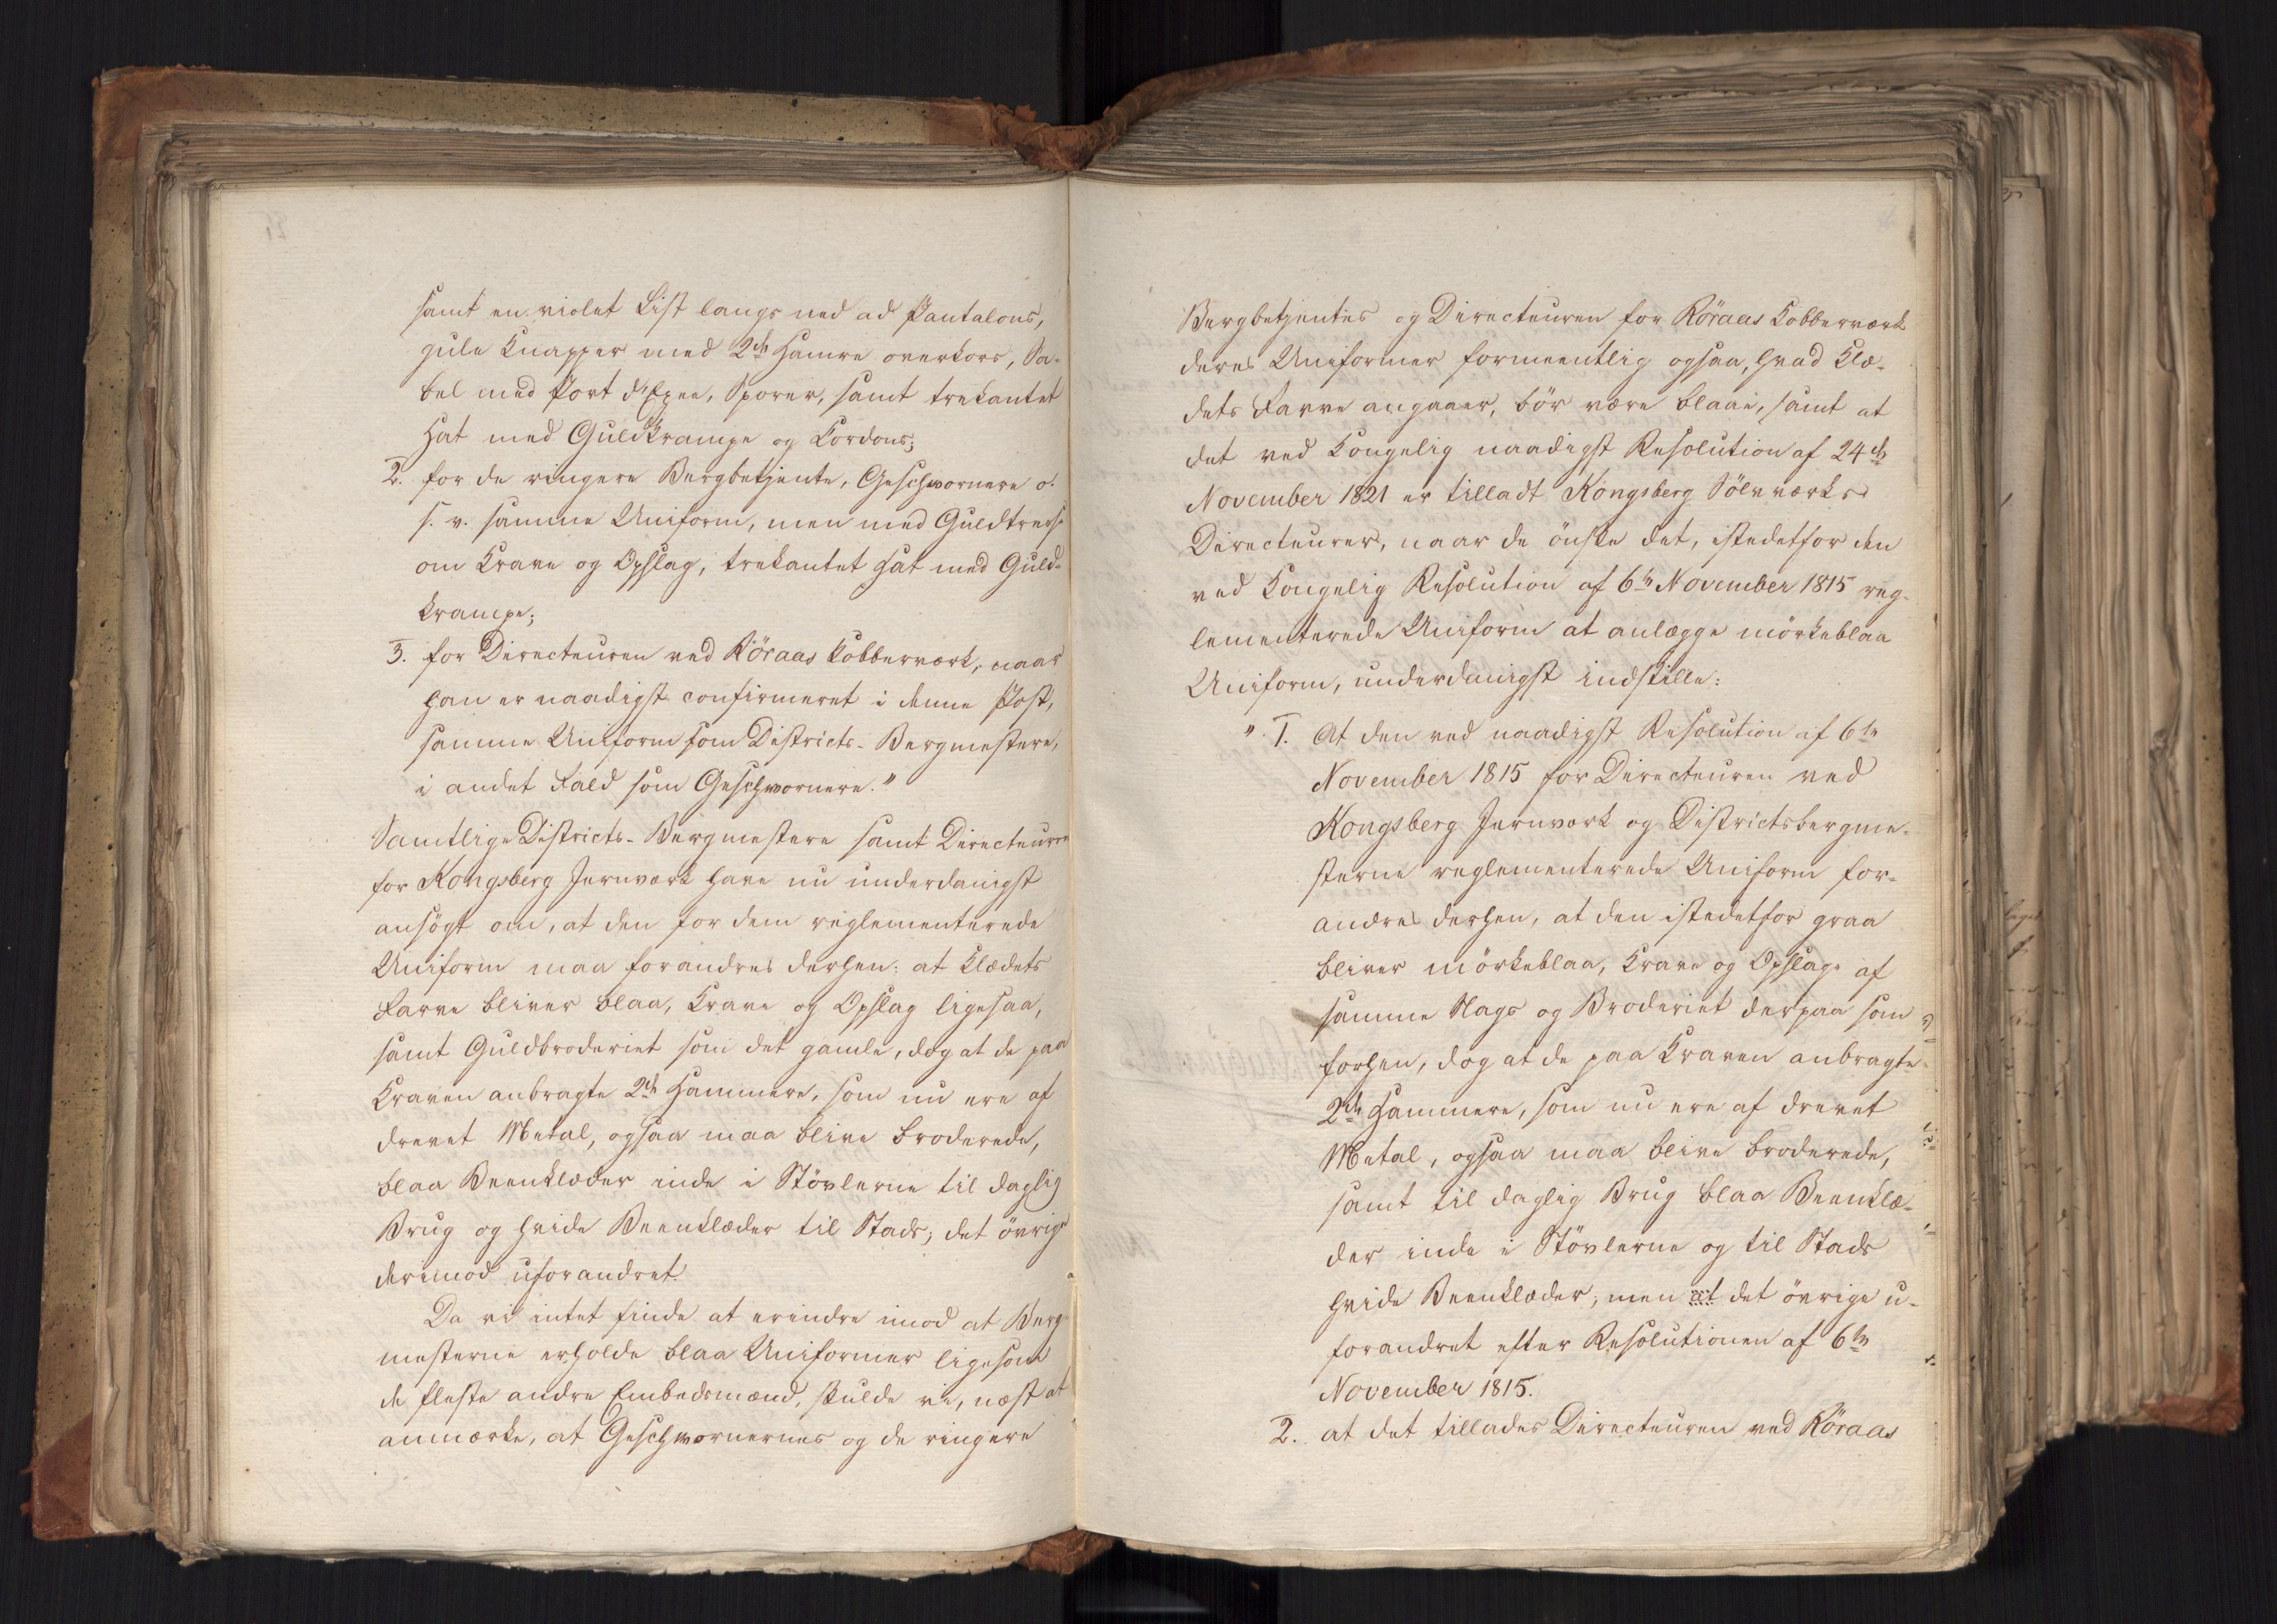 samt en violet List langs ned ad Pantalons,
gule Knapper med 2de Hamre overkors, Sa-
bel med Port d'Epee, Sporer, samt trekantet
Hat med Guldkrampe og Cordons;
2. for de ringere Bergbetjente, Geschwornere o.
s. v. samme Uniform, men med Guldtresse
om Krave og Opslag, trekantet Hat med Guld-
krampe;
3. for Directeuren ved Röraas Kobberværk, naar
han er naadigst confirmeret i denne Post,
samme Uniform som Districts-Bergmestere,
i andet Fald som Geschwornere."
Samtlige Districts-Bergmestere samt Directeuren
for Kongsberg Jernværk have nu underdanigst
ansögt om, at den for dem reglementerede
Uniform maa forandres derhen: at Klædets
Farve bliver blaa, Krave og Opslag ligesaa,
samt Guldbroderiet som det gamle, dog at de paa
Kraven anbragte 2de Hammere, som nu ere af
drevet Metal, ogsaa maa blive broderede,
blaa Beenklæder inde i Stövlerne til daglig
Brug og hvide Beenklæder til Stads; det övrige
derimod uforandret.
Da vi intet finde at erindre imod at Berg-
mesterne erholde blaa Uniformer ligesom
de fleste andre Embedsmænd, skulde vi, næst at
anmærke, at Geschwornernes og de ringere
Bergbetjentes og Directeuren for Röraas Kobberværk
deres Uniformer formeentlig ogsaa, hvad Klæ-
dets Farve angaaer, bör være blaae, samt at
det ved Kongelig naadigst Resolution af 24de
November 1821 er tilladt Kongsberg Sölvværks
Directeurer, naar de önske det, istedetfor den
ved Kongelig Resolution af 6te November 1815 reg-
lementerede Uniform at anlægge mörkeblaa
Uniform, underdanigst indstille:
" 1. At den ved naadigst Resolution af 6te
November 1815 for Directeuren ved
Kongsberg Jernværk og Districtsbergme-
sterne reglementerede Uniform for-
andres derhen, at den istedetfor graa
bliver mörkeblaa, Krave og Opslage af
samme Slags og Broderiet derpaa som
forhen, dog at de paa Kraven anbragte
2de Hammere, som nu ere af drevet
Metal, ogsaa maa blive broderede,
samt til daglig Brug blaa Beenklæ-
der inde i Stövlerne og til Stads
hvide Beenklæder; men at det övrige u-
forandret efter Resolutionen af 6te
November 1815.
2. at det tillades Directeuren ved Röraas